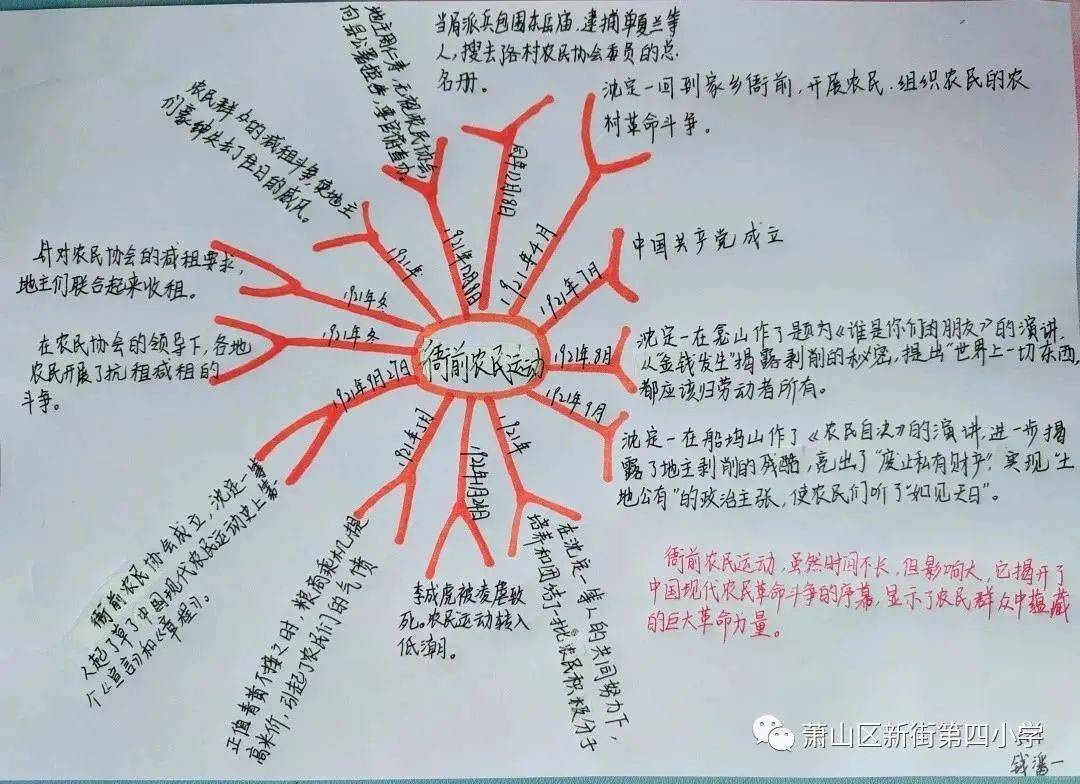 衙前农民运动
1921年4月
沈定一回到家乡衙前,开展农民、组织农民的农
村革命斗争。
1921年7月
中国共产党成立
1921年8月
沈定一在龛山作了题为《谁是你们的朋友》的演讲,
从"金钱发生"揭露剥削的秘密,提出"世界上一切东西,
都应该归劳动者所有。
1921年9月
沈定一在船坞山作了《农民自决》的演讲,进一步揭
露了地主剥削的残酷,亮出了"废止私有财产",实现"土
地公有"的政治主张,使农民们听了"如见天日"。
1921年
在沈定一等人的共同努力下,
培养和团结了一批农民积极分子
1922年1月24日
李成虎被凌虐致
死。农民运动转入
低潮。
1921年5月
正值青黄不接之时,粮商乘机提
高米价,引起了农民们的气愤
1921年9月27日
衙前农民协会成立,沈定一等
人起草了中国现代农民运动史上第一
个《宣言》和《章程》。
1921年冬
在农民协会的领导下,各地
农民开展了抗租减租的
斗争。
1921年冬
针对农民协会的减租要求,
地主们联合起来收租。
1921年
农民群众的减租斗争,使地主
们豪绅失去了往日的威风。
1921年12月8日
地主周仁寿,无视农民协会,
向县公署控告,要官府查办。
同年12月18日
当局派兵包围东岳庙,逮捕单夏兰等
人,搜去了各村农民协会委员的总
名册。
衙前农民运动,虽然时间不长,但影响大,它揭开了
中国现代农民革命斗争的序幕,显示了农民群众中蕴藏
的巨大革命力量。
萧山区新街第四小学
钱潘一